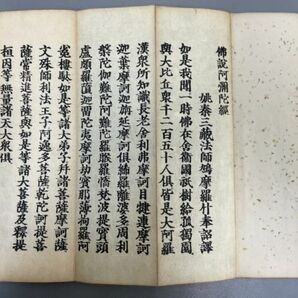 佛說阿彌陀經
姚秦三藏法師鳩摩羅什奉詔譯
如是我聞一時佛在舍衛國祇樹給孤獨園
與大比丘衆千二百五十人俱皆是大阿羅
漢衆所知識長老舍利弗摩訶目犍連摩訶
迦葉摩訶迦旃延摩訶俱絺羅離婆多周利
槃陀伽難陀阿難陀羅睺羅憍梵波提賓頭
盧頗羅墮迦留陀夷摩訶劫賓那薄拘羅阿
㝹樓馱如是等諸大弟子幷諸菩薩摩訶薩
文殊師利法王子阿逸多菩薩乾陀訶提菩
薩常精進菩薩與如是等諸大菩薩及釋提
桓因等無量諸天大衆俱